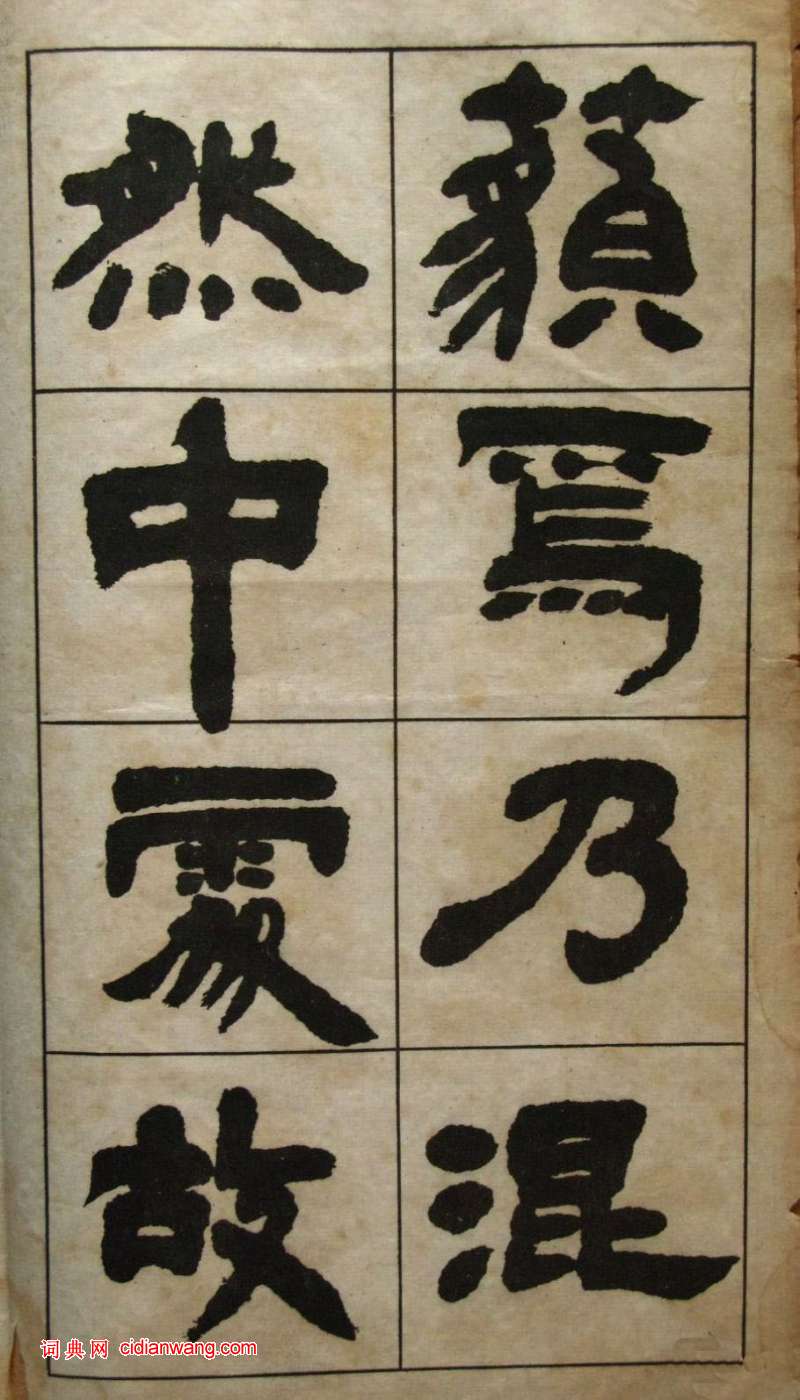 藐焉乃混
然中處故
词典网 cidianwang.com